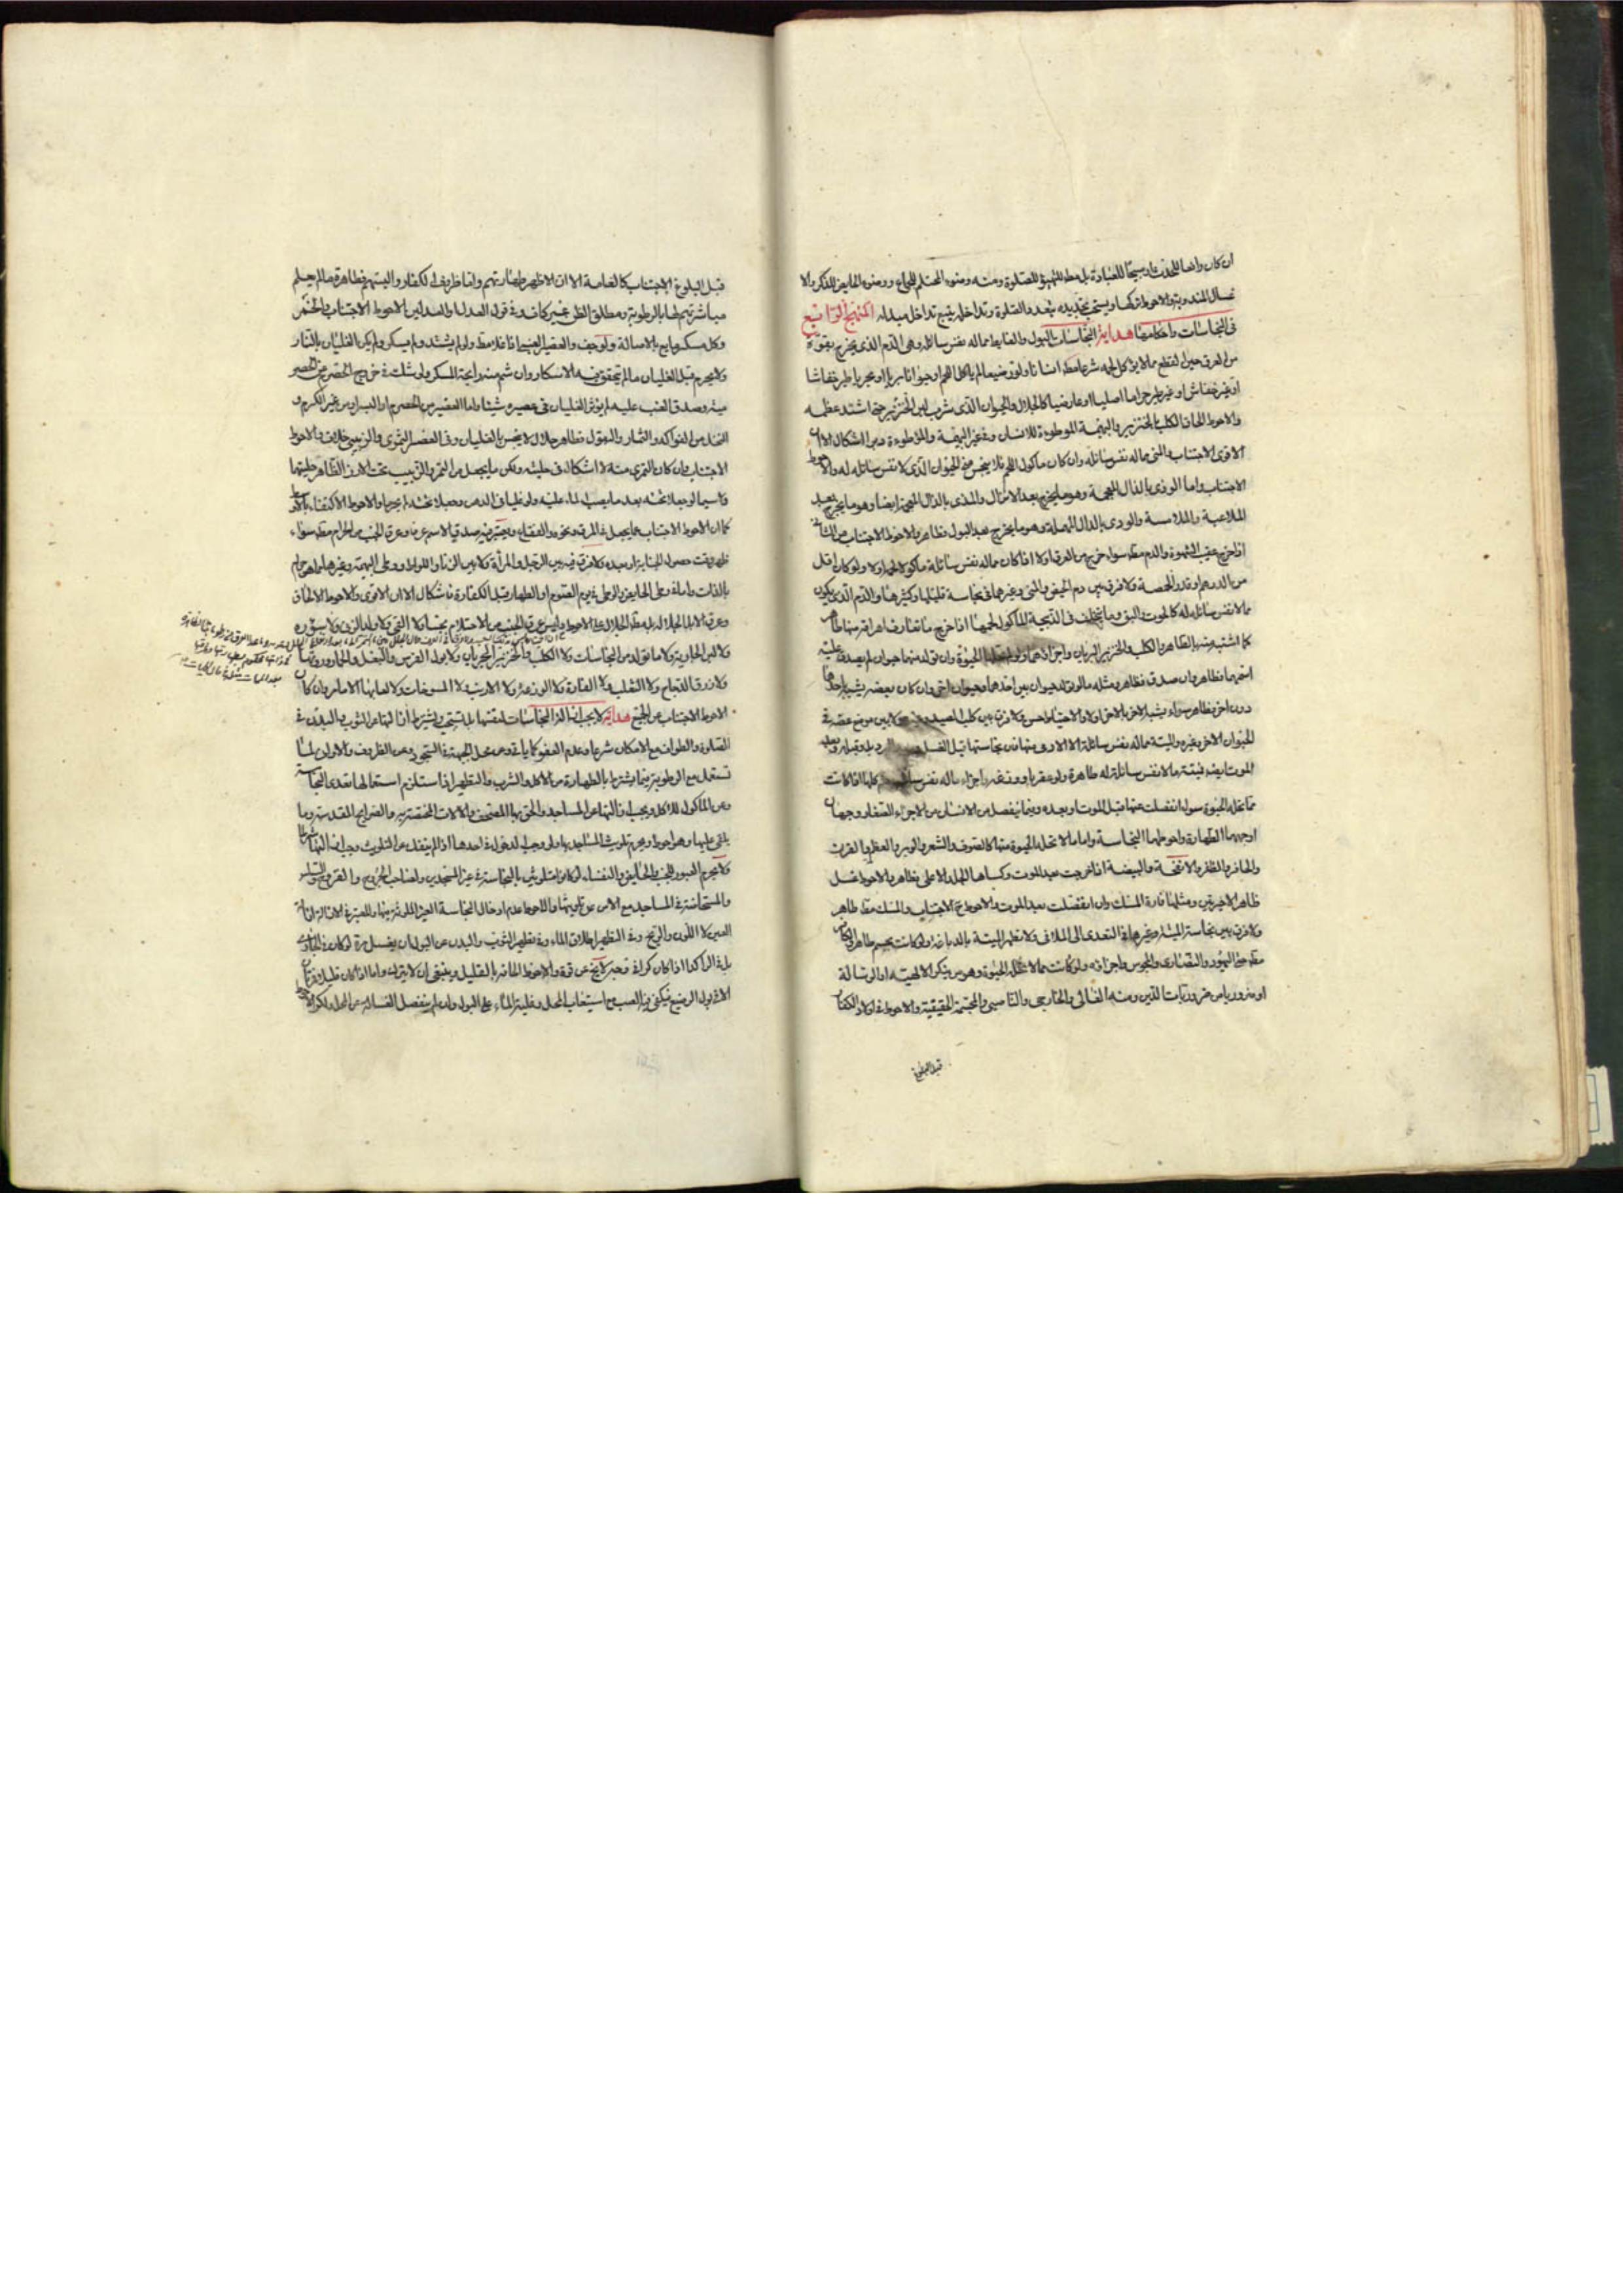 ان كان رافعا للحدث او مبيحا للعبادة بل مطلقا للتهيؤ للصلوة ومنه وضوء المحتلم للجماع ووضوء الحايض للذكر والا
غسال المندوبة والاحوط تركها ويستحب تجديده بعد والصلوة وتداخله يتبع تداخل مبدله المنهج الرابع
فى النجاسات واحكامها هداية النجاسات البول والغايط مما له نفس سائلة وهى الدم الذى يخرج بقوة
من العرق حين القطع مما لا يؤكل لحمه شرعا مطلقا انسانا ولو رضيعا لم ياكل اللحم او حيوانا بريا او بحريا طير خفاشا
او غير خفاش او غير طير حراما اصليا او عارضيا كالجلال والحيوان الذى شرب لبن الخنزير حتى اشتد عظمه
والاحوط الحاق الكلب بالخنزير والبهيمة الموطوءة للانسان وفى غير البهيمة والموطوءة اشكال الا ان
الاقوى الاجتناب والمنى مما له نفس سائلة وان كان ماكول اللحم فلا ينجس منى الحيوان الذى لا نفس سائلة له والاحوط
الاجتناب واما الوذى بالذال المعجمة وهو ما يخرج بعد الانزال والمذى بالذال المعجمة ايضا وهو ما يخرج بعد
الملاعبة والملامسة والودى بالدال المهملة وهو ما يخرج بعد البول فطاهر والاحوط الاجتناب من الثانى
اذا خرج عقيب الشهوة والدم مطلقا سواء خرج من العرق او لا اذا كان مما له نفس سائلة ماكولا لحمه او لا ولو كان اقل
من الدرهم او قدر الحمصة ولا فرق بين دم الحيض والمنى وغيرها فى نجاسة قليلها وكثيرها والدم الذى يكون
مما لا نفس سائلة له كالحوت والبق وما يتخلف فى الذبيحة الماكول لحمها اذا خرج ما تعارف اهراقه منها طاهر
كما اشتبه منه بالطاهر والكلب والخنزير البريان واجزاءهما ولو لم تحلها الحيوة وان تولد منهما حيوان لم يصدق عليه
اسمهما فطاهر وان صدق فطاهر ومثله ما لو تولد حيوان بين احدهما وحيوان اخر وان كان بعضه يشبه احدهما
دون اخر فطاهر سواء يشبه الاخر بالاخر او لا والاحتياط حسن ولا فرق بين كلب الصيد وغيره ولا بين موضع عضه فى
الحيوان الاخر وغيره والميتة مما له نفس سائلة الا الادمى منها فان نجاستها قبل الغسل
الموت ايضا فميتة ما لا نفس سائلة له طاهرة ولو عقربا ووزغة واجزاء ما له نفس سائلة كلها اذا كانت
مما تحله الحيوة سواء انفصلت عنها قبل الموت او بعده وفيما ينفصل من الانسان من الاجزاء الصغار وجهان
اوجههما الطهارة واحوطهما النجاسة واما ما لا تحله الحيوة منها كالصوف والشعر والوبر والعظم والقرن
والحافر والظفر والانفحة والبيضة اذا خرجت بعد الموت وكساها الجلد الاعلى فطاهر والاحوط غسل
ظاهر الاخيرتين ومثلها فارة المسك وان انفصلت بعد الموت والاحوط ح الاجتناب والمسك مطلقا طاهر
ولا فرق بين نجاسة الميتة وغيرها فى التعدى الى الملاقى ولا تطهر الميتة بالدباغة ولو كانت بجسم طاهر والكافر
مطلقا حتى اليهود والنصارى والمجوس واجزاؤه ولو كانت مما لا تحله الحيوة وهو من ينكر الالهية او الرسالة
او ضروريا من ضروريات الدين ومنه الغالى والخارجى والناصبى والمجسمة الحقيقية والاحوط فى اولاد الكفار
قبل البلوغ
قبل البلوغ الاجتناب كالعامة الا ان الاظهر طهارتهم واما ظروف الكفار والبستهم فطاهرة ما لم يعلم
مباشرتهم لها بالرطوبة ومطلق الظن غير كاف وفى قول العدل او العدلين الاحوط الاجتناب والخمر
وكل مسكر مايع بالاصالة ولو جف والعصير العنبى اذا غلا مطلقا ولو لم يشتد ولم يسكر ولم يكن الغليان بالنار
ولا يحرم قبل الغليان ما لم يتحقق فيه الاسكار وان شم منه رايحة المسكر ولو شك فى خروج الحصرم عن الحصر
مية وصدق العنب عليه لم يؤثر الغليان فى عصيره شيئا واما العصير من الحصرم او البسر او من غير الكرم و
النخل من الفواكه والثمار والبقول فطاهر حلال لا ينجس بالغليان وفى العصير التمرى والزبيبى خلاف والاحوط
الاجتناب وان كان التمرى منه لا اشكال فى حليته ولكن ما يجعل من التمر والزبيب تحت الارز الظاهر حليتها
ولا سيما لو جعلا تحته بعد ما يصب الماء عليه ولو غليا فى الدهن وجعلا تحته لم يحرما والاحوط الاكتفاء بالاخير
كما ان الاحوط الاجتناب عما يجعل فى المرق ونحوه والفقاع ويعتبر فيه صدق الاسم عرفا وعرق الجنب من الحرام مطلقا سواء
ظهر وقت حصول الجنابة او بعده ولا فرق فيه بين الرجل والمرأة ولا بين الزنا واللواط ووطى البهيمة وغيرها مما هو حرام
بالذات واما فى وطى الحايض والوطى فى يوم الصوم او الظهار قبل الكفارة فاشكال الا ان الاقوى والاحوط الالحاق
وعرق الابل الجلالة بل مطلق الجلال على الاحوط وليس عرق الجنب من الاحتلام نجسا ولا القئ ولا ولد الزنى ولا سؤره
ولا لبن الجارية ولا ما تولد من النجاسات ولا الكلب والخنزير البحريان ولا بول الفرس والبغل والحمار وروثها
ولا ذرق الدجاج ولا الثعلب ولا الفارة ولا الوزغة ولا الارنب ولا المسوخات ولا لعابها الا ما مر وان كان
الاحوط الاجتناب عن الجميع هداية لا يجب ازالة النجاسات لنفسها بل تستحب ويشترط ازالتها عن الثوب والبدن فى
الصلوة والطواف مع الامكان شرعا وعدم العفو كما ياتى وعن محل الجبهة فى السجود وعن الظروف والاوانى لما
تستعمل مع الرطوبة فيما يشترط بالطهارة من الاكل والشرب والتطهير اذا استلزم استعمالها تعدى النجاسة
وعن الماكول للاكل ويجب ازالتها عن المساجد والحق بها المصحف والالات المختصة به والضرايح المقدسة وما
يلقى عليها وهو احوط ويحرم تلويث المساجد بها ولو وجب الدخول فى احدها اذا لم ينفك عن التلويث وجب ازالتها
ولا يحرم العبور للجنب والحايض والنفساء لو كانوا متلوثين بالنجاسة فى غير المسجدين ولصاحب الجروح والقروح والسلس
والمستحاضة فى المساجد مع الامن عن تلويثها والاحوط عدم ادخال النجاسة الغير الملوثة فيها والمعتبر فى الازالة ازالة
العين لا اللون والريح وفى التطهير اطلاق الماء وفى تطهير الثوب والبدن عن البول ان يغسل مرة لو كان فى الجارى
بل فى الراكد اذا كان كرا لا يخ عن قوة والاحوط الحاقه بالقليل وينبغى ان لا يترك واما اذا كان قليلا فمرتان
الا فى بول الرضيع فيكفى فيه الصب مع استيعاب المحل وغلبة الماء على البول وان لم ينفصل الغسالة عن المحل ولكن الاحوط